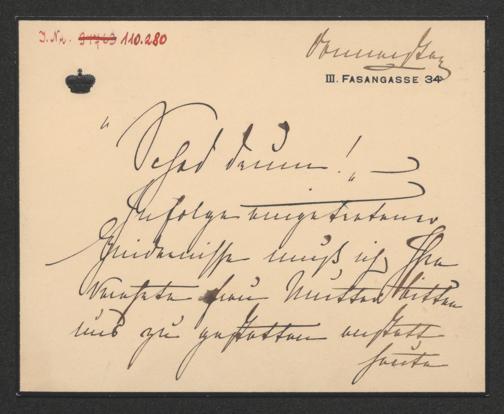 I. Nr. 91763 110.280
Donnerstag
III. FASANGASSE 34
„Schad drum!“
Infolge eingetretener
Hindernisse muß ich Ihre
Verehrte Frau Mutter bitten
uns zu gestatten anstatt
heute